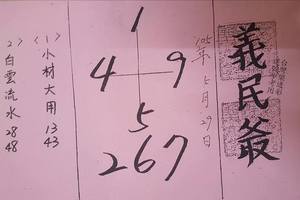 義民爺
105年5月29日
1
4 9
5
267
〈1〉小材大用 13 43
〈2〉白雲流水 28 48